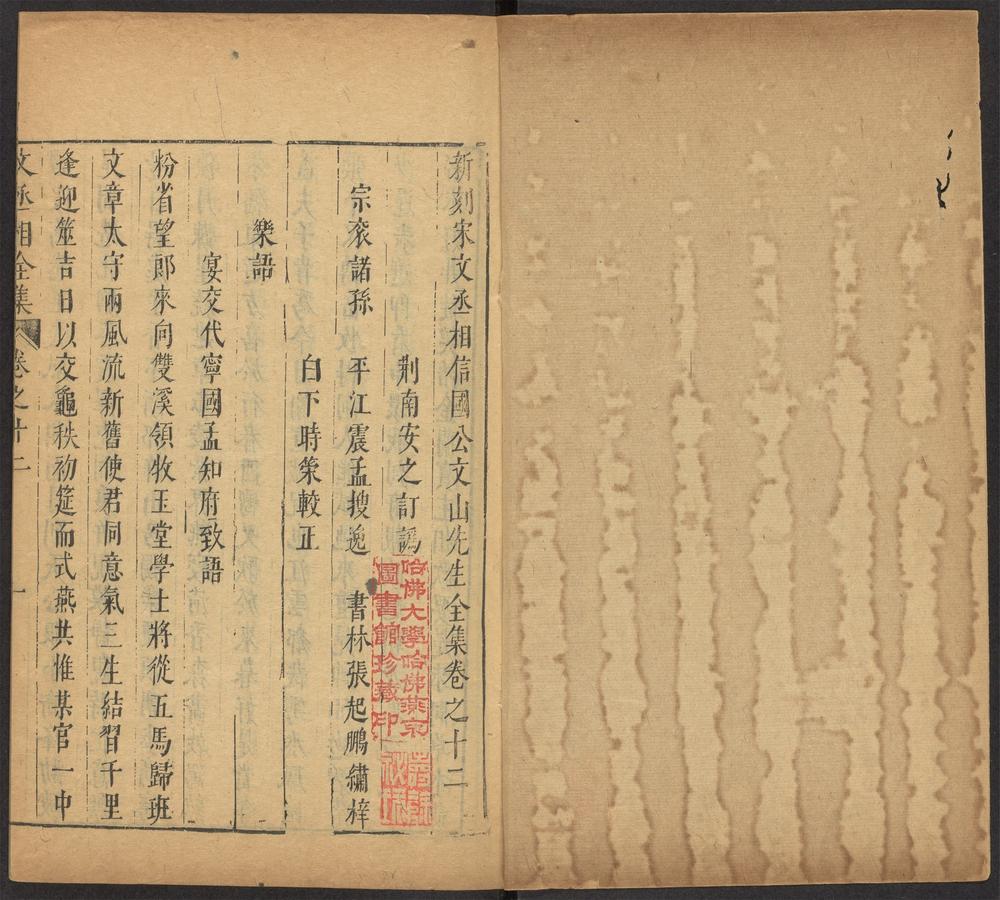 新刻宋文丞相信國公文山先生全集卷之十二
荆南安之訂譌
宗袞諸孫 平江震孟搜逸 書林張起鵬繡梓
白下時策較正
樂語
宴交代寧國孟知府致語
粉省望郎來向雙溪領牧玉堂學士將從五馬歸班
文章太守兩風流新舊使君同意氣三生結習千里
逢迎筮吉日以交龜秩初筵而式燕共惟某官一中
文丞相全集 卷之十二 一
哈佛大學哈佛燕京
圖書館珍藏印